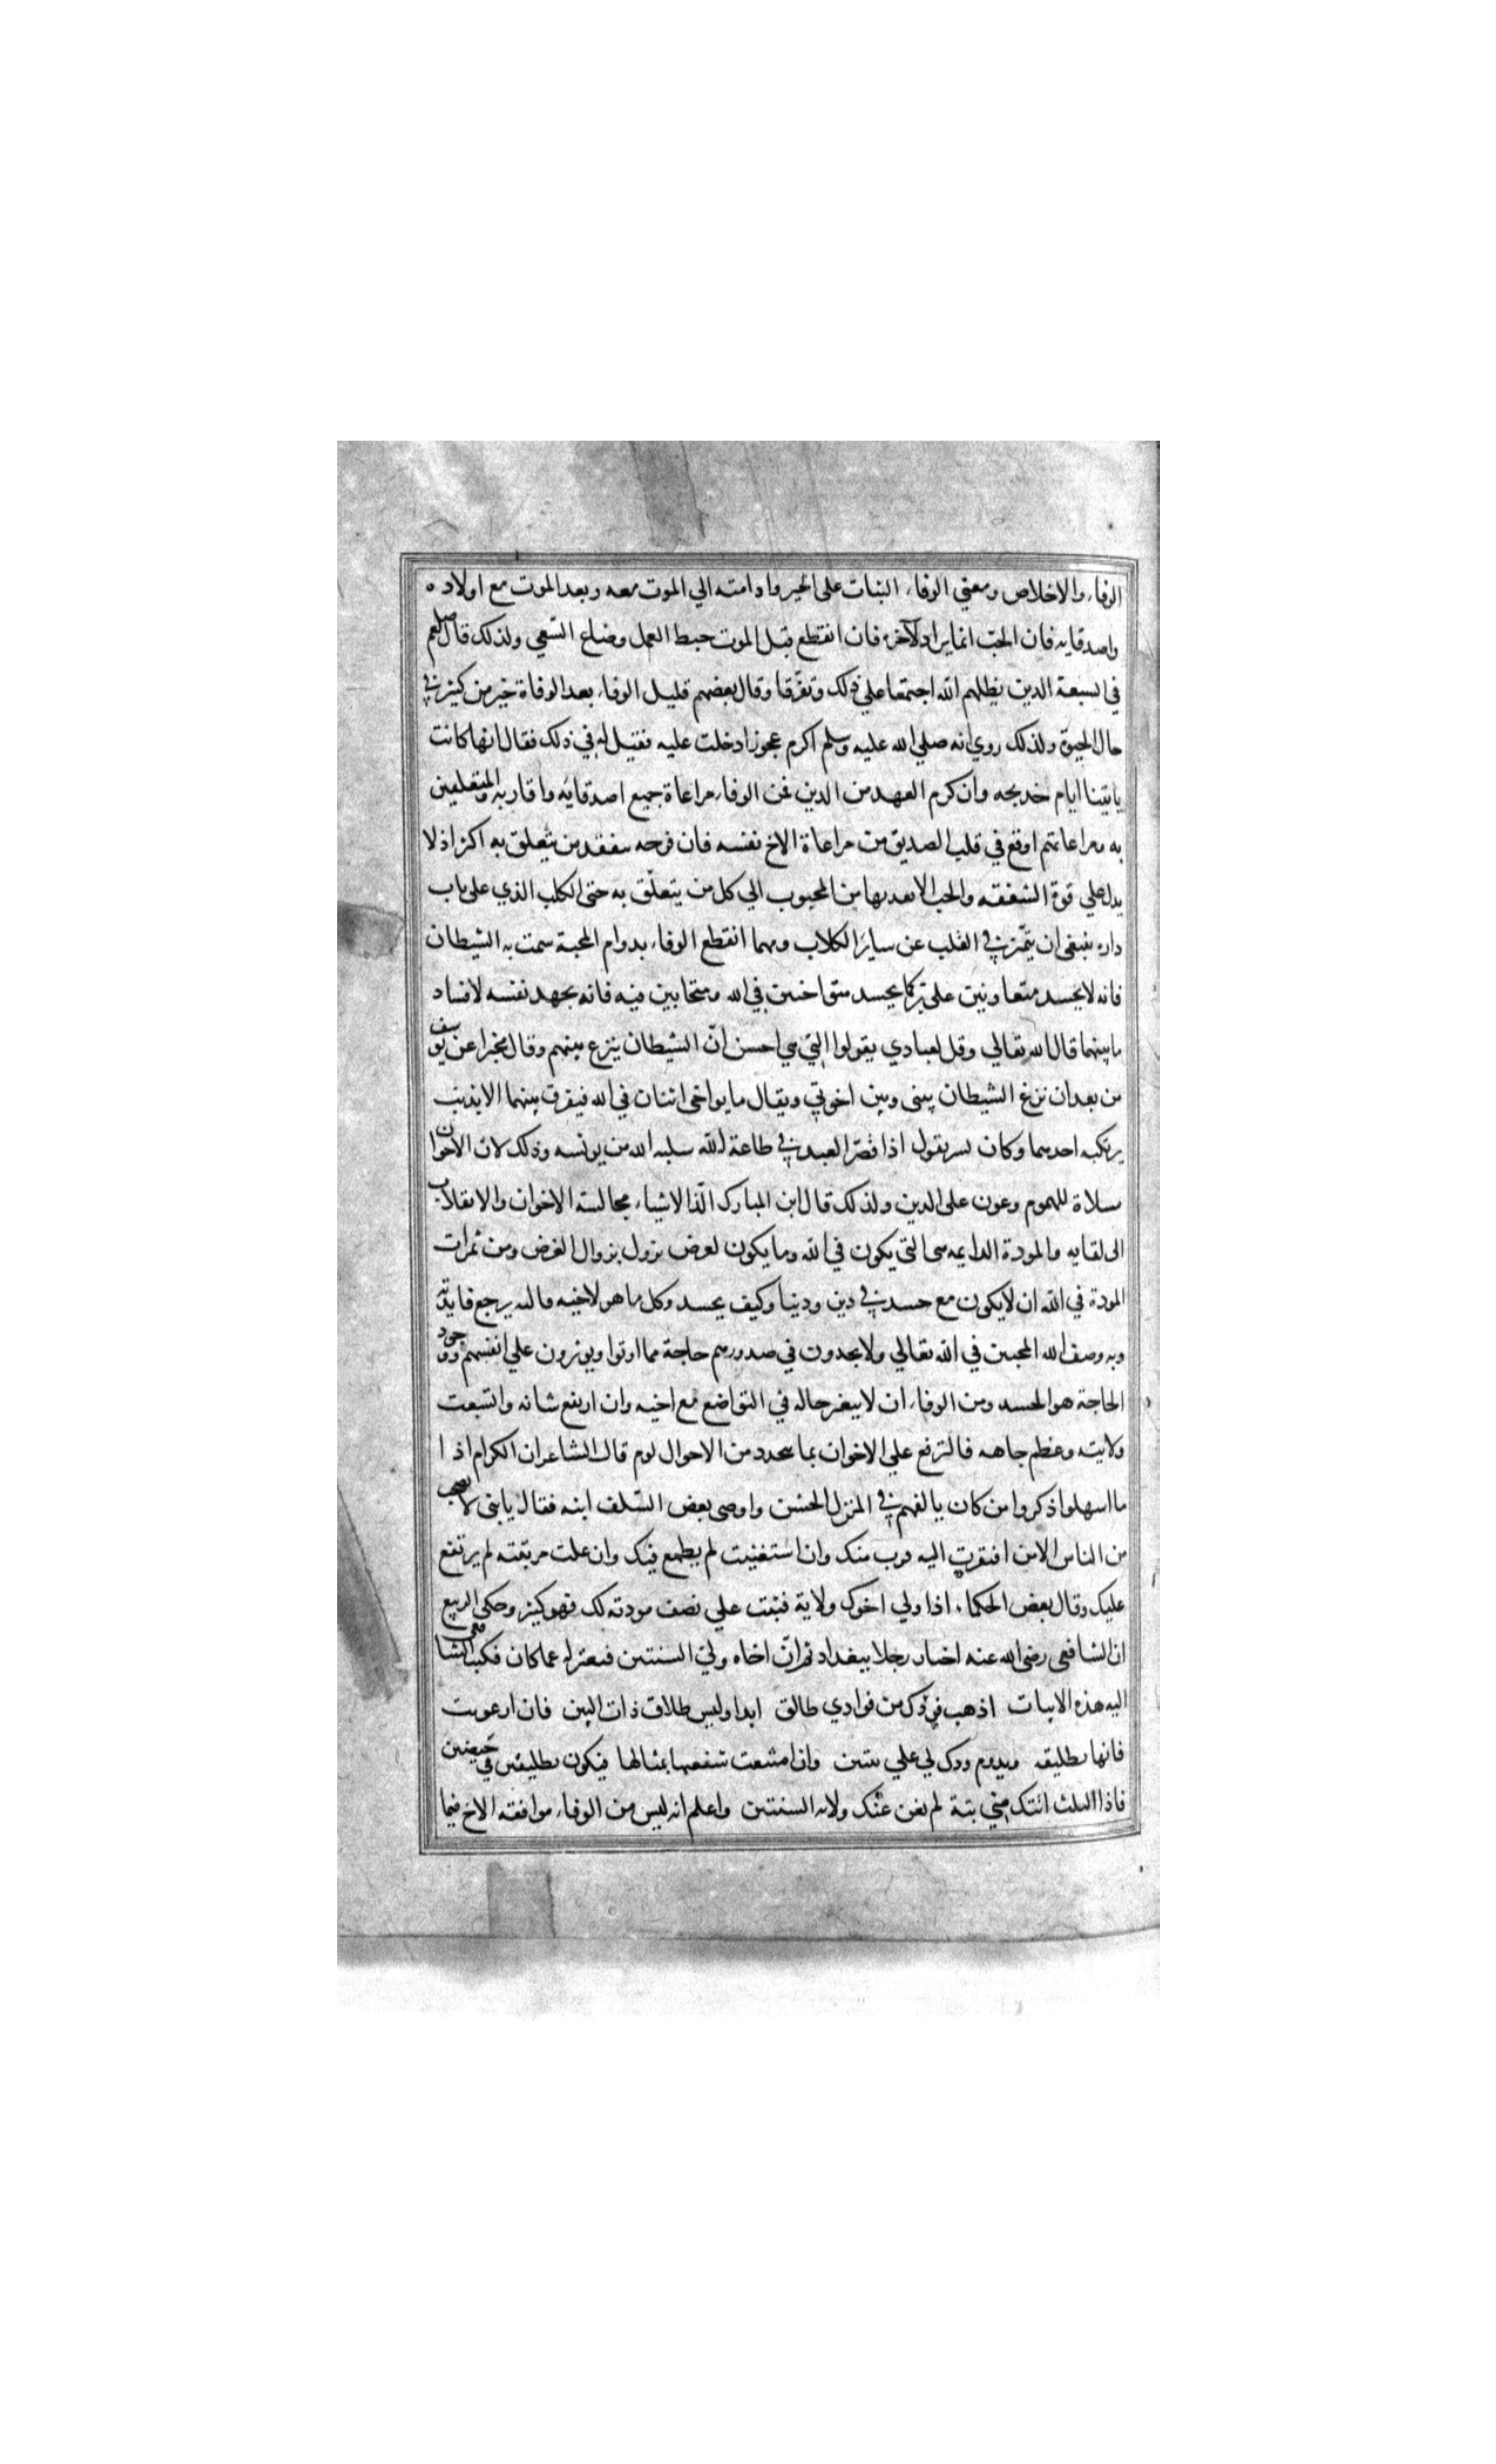 الوفاء والاخلاص ومعني الوفاء الثبات علي الخير وادامته الي الموت معه وبعد الموت مع اولاده
واصدقايه فان الحبّ انما يراد للآخرة فان انقطع قبل الموت حبط العمل وضاع السّعي ولذلك قال صلعم
في السبعة الذين يظلهم الله اجتمعا علي ذلك وتفرّقا وقال بعضهم قليل الوفاء بعد الوفاة خير من كثير في
حال الحيوة ولذلك روي انه صلي الله عليه وسلم اكرم عجوزا دخلت عليه فقيل له في ذلك فقال انها كانت
ياتينا ايام خديجه وان كرم العهد من الدين فمن الوفاء مراعاة جميع اصدقائه واقاربه والمتعلقين
به ومراعاتهم اوقع في قلب الصديق من مراعاة الاخ نفسه فان فرحه بتفقد من يتعلق به اكثر اذ لا
يدل علي قوة الشفقه والحب الا تعديها من المحبوب الي كل من يتعلّق به حتي الكلب الذي علي باب
داره ينبغي ان يتميّز في القلب عن ساير الكلاب ومهما انقطع الوفاء بدوام المحبة شمت به الشيطان
فانه لا يحسد متعاونين علي بر كما يحسد متواخيين في الله ومتحابين فيه فانه يجهد نفسه لافساد
ما بينهما قال الله تعالي وقل لعبادي يقولوا التي هي احسن انّ الشيطان ينزغ بينهم وقال مخبرا عن يوسف
من بعد ان نزغ الشيطان بيني وبين اخوتي ويقال ما تواخي اثنان في الله فيفرق بينهما الا بذنب
يرتكبه احدهما وكان بشر يقول اذا قصّر العبد في طاعة الله سلبه الله من يونسه وذلك لان الاخوان
مسلاة للهموم وعون علي الدين ولذلك قال ابن المبارك الذّ الاشياء مجالسة الاخوان والانقلاب
الي لقايه والمودة الدايمه هي التي يكون في الله وما يكون لغرض يزول بزوال الغرض ومن ثمرات
المودة في الله ان لا يكون مع حسد في دين ودنيا وكيف يحسد وكل ما هو لاخيه فاليه يرجع فايدته
وبه وصف الله المحبين في الله تعالي ولا يجدون في صدورهم حاجة مما اوتوا ويوثرون علي انفسهم ووجود
الحاجة هو الحسد ومن الوفاء ان لا يتغير حاله في التواضع مع اخيه وان ارتفع شانه واتسعت
ولايته وعظم جاهه فالترفع علي الاخوان بما يتجدد من الاحوال لوم قال الشاعر ان الكرام اذا
ما اسهلوا ذكروا من كان يالفهم في المنزل الخشن واوصي بعض السّلف ابنه فقال يا بني لا تصحب
من الناس الا من افتقرت اليه قرب منك وان استغنيت لم يطمع فيك وان علت مرتبته لم يرتفع
عليك وقال بعض الحكماء اذا ولي اخوك ولاية فثبت علي نصف مودته لك فهو كثير وحكي الربيع
ان الشافعي رضي الله عنه اخا رجلا ببغداد ثم انّ اخاه ولي السنتين فتغير له عما كان فكتب الشافعي
اليه هذه الابيات اذهب فودك من فوادي طالق ابدا وليس طلاق ذات البين فان ارعويت
فانها تطليقه ويدوم ودك لي علي ثنتين وان امتنعت شفعتها بمثالها فيكون تطليقين في حيضين
فاذا الثلث اتتك مني بتة لم يغن عنك ولاية السنتين واعلم انه ليس من الوفاء موافقة الاخ فيما